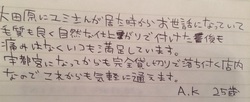 大田原にユミさんが居た時からお世話になっていて
毛質も良く自然な仕上がりで付けた後も
痛みはなくいつも満足しています。
宇都宮になってからも完全貸し切りで落ち着く店内
なのでこれからも気軽に通えます。
A.K 25歳